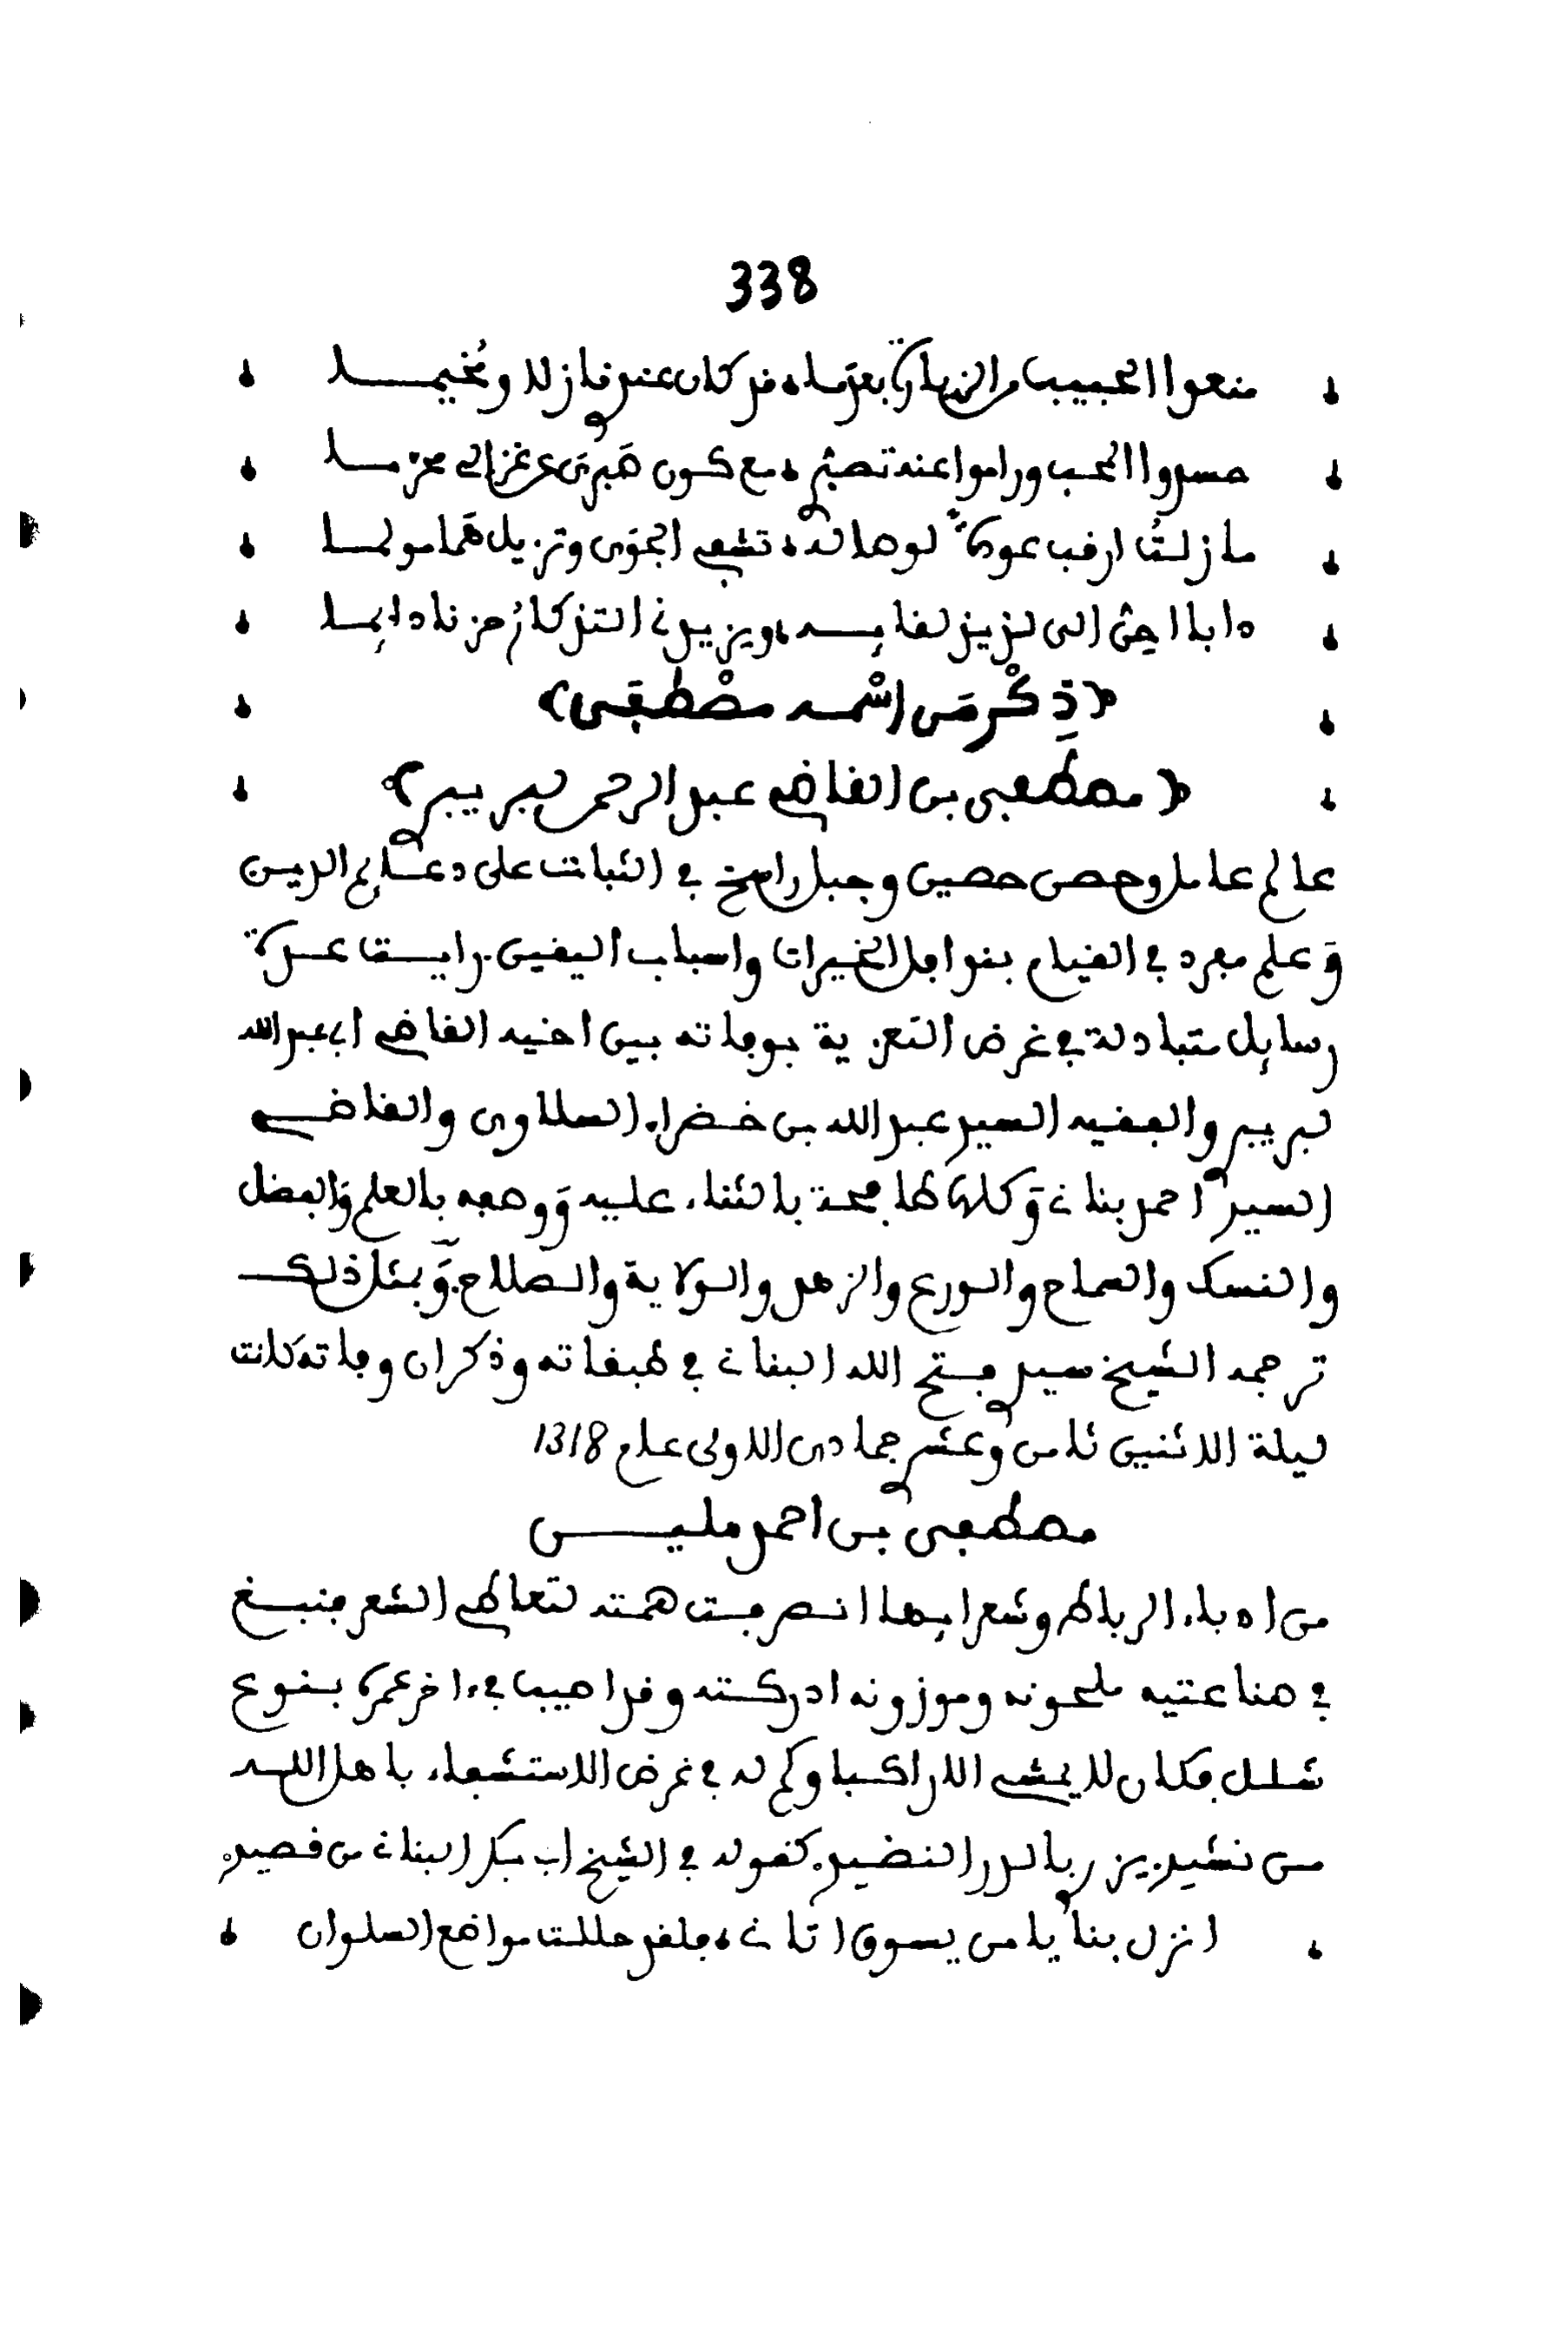 338
منعوا الحبيب من الزيارة بعد ما ، قد كان عندي نازلا ومخيما
حسدوا المحب وراموا عنه تصبري ، مع كون صبري عن غزالي محرما
ما زلت ارقب عودة لوصاله ، تشفي الجوى وتزيل هما مولما
دابا احن الى لذيذ لقايه ، ويزيدني التذكار حزنا دايما
﴿ ذِكْر مَن اسْمه مصْطفَى ﴾
﴿ مصطفى بن القاضي عبد الرحمن لبريبر ﴾
عالم عامل وحصن حصين وجبل راسخ في الثبات على دعايم الدين
وعلم مفرد في القيام بنوافل الخيرات واسباب اليقين. رايت عدة
رسايل متبادلة في غرض التعزية بوفاته بين اخيه القاضي ابي عبد الله
لبريبر والفقيه السيد عبد الله بن خضراء السلاوى والقاضي
السيد احمد بناني وكلها طافحة بالثناء عليه ووصفه بالعلم والفضل
والنسك والسماح والورع والزهد والولاية والصلاح. وبمثل ذلك
ترجمه الشيخ سيدي فتح الله البناني في طبقاته وذكر ان وفاته كانت
ليلة الاثنين ثامن وعشر جمادى الاولى عام 1318
مصطفى بن احمد مليـــن
من ادباء الرباط وشعرايها انصرفت همته لتعاطي الشعر فنبغ
في صناعتيه ملحونه وموزونه ادركته وقد اصيب في ءاخر عمره بنوع
شلل فكان لا يمشي الا راكبا وكم له في غرض الاستشفاء باهل الله
من نشيد يزري بالدر النضيد. كقوله في الشيخ ابي بكر البناني من قصيدة
انزل بنا يا من يسوق اتاني ، فلقد حللت مواضع السلوان